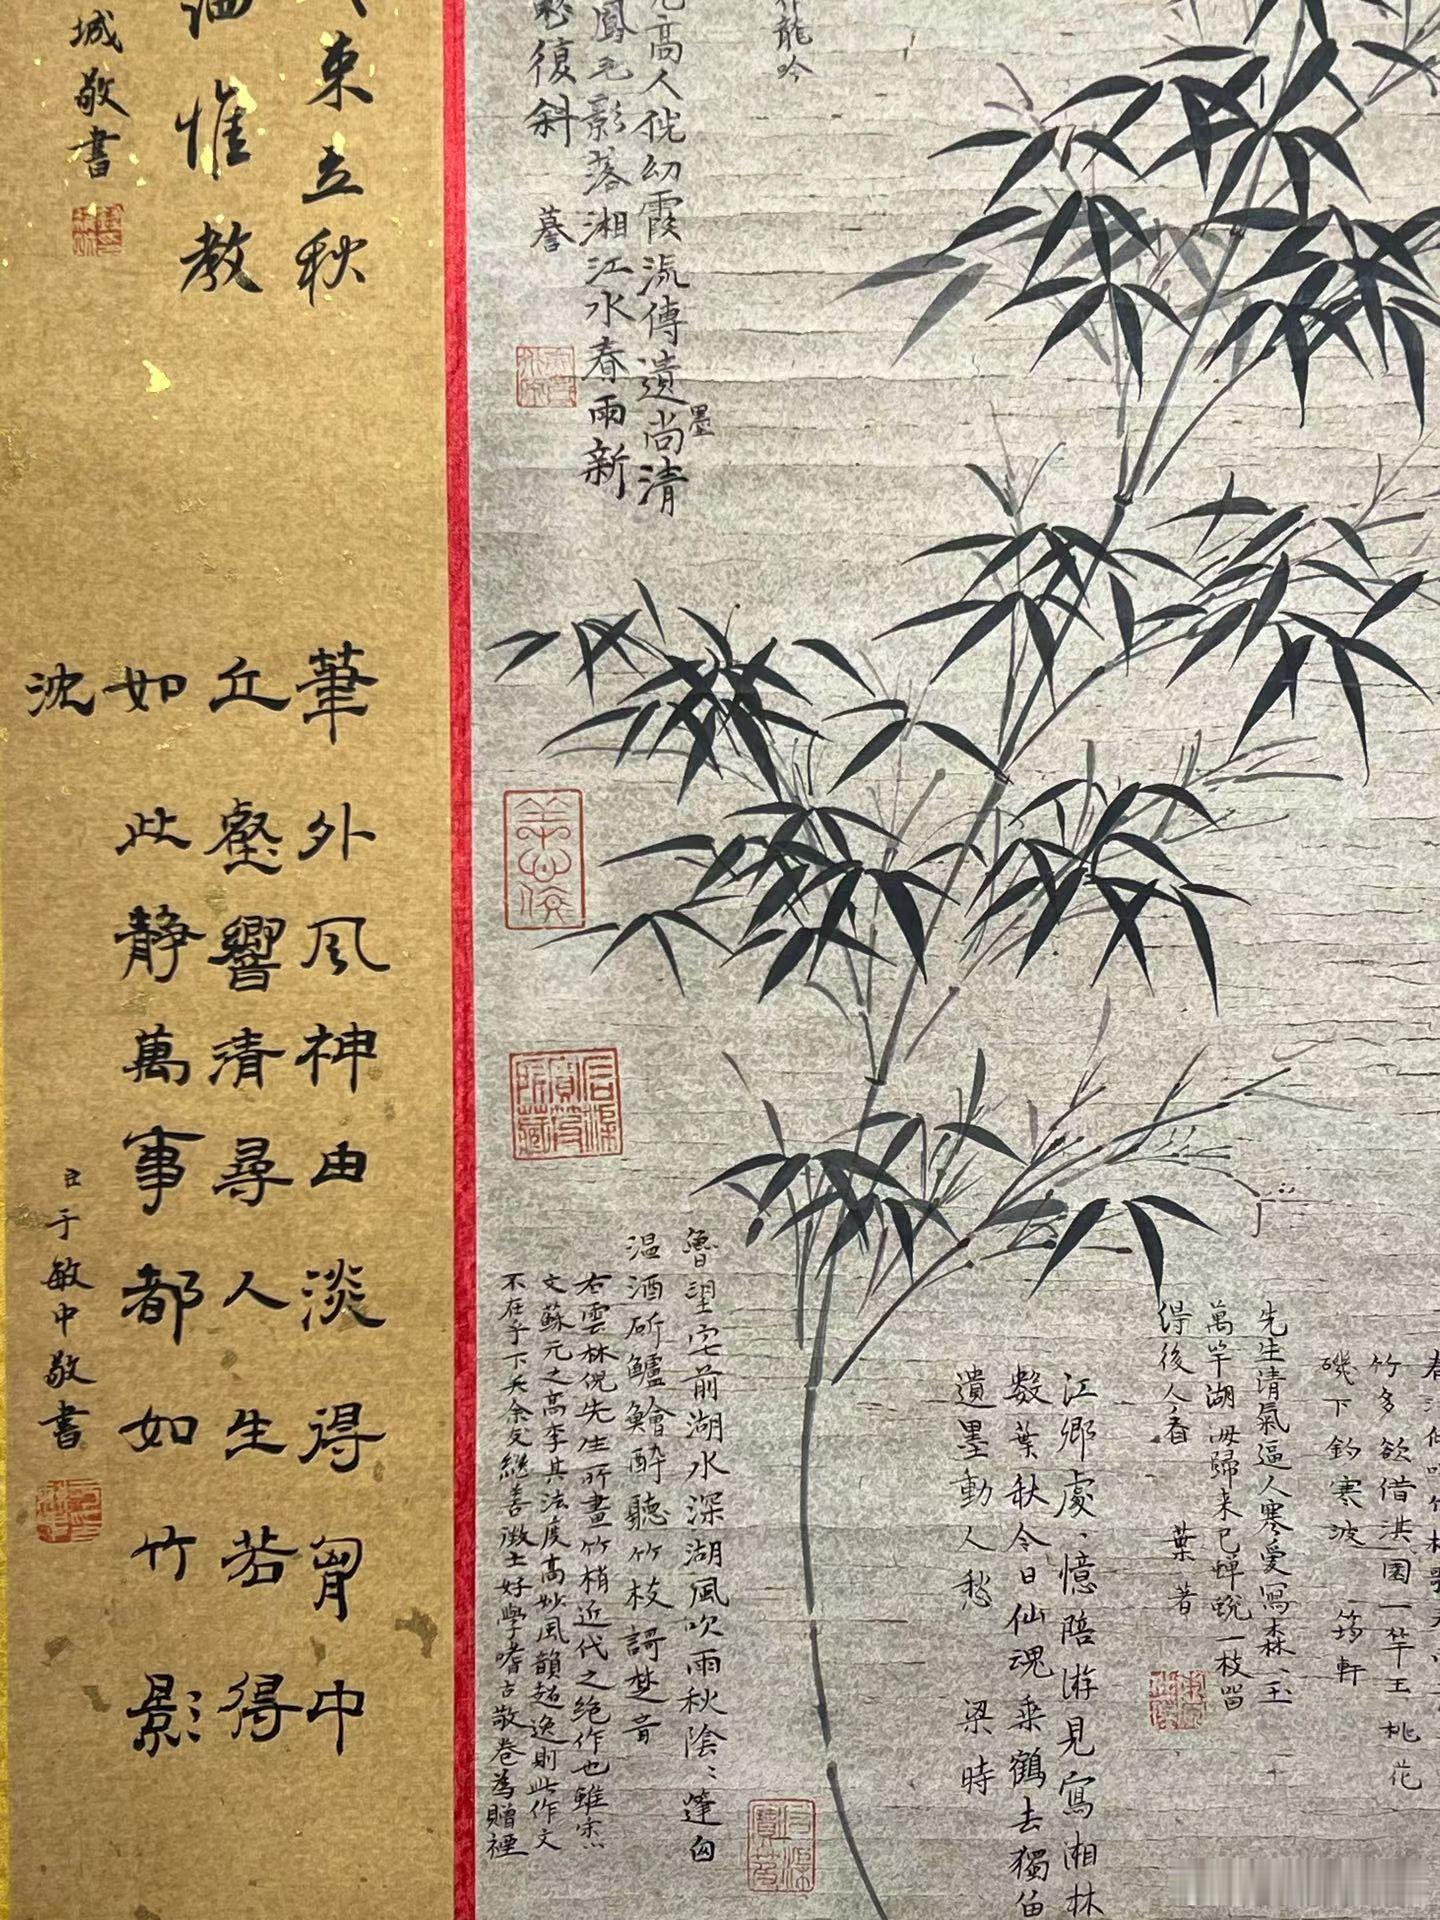 先生清氣逼人寒愛寫森〻玉
萬竿湖海歸来已蟬蛻一枝留
得後人看
葉著
竹多欲借淇園一竿玉桃花
磯下釣寒波
筠軒
江鄉處〻憶陪游見寫湘林
數葉秋今日仙魂乘鶴去獨留
遺墨動人愁
梁時
龍吟
高人倪幼霞流傳遺墨尚清
鳳毛影落湘江水春雨新
復斜
謩
魯望宅前湖水深湖風吹雨秋陰〻篷囱
温酒斫鱸鱠醉聽竹枝謌楚音
右雲林倪先生所畫竹梢近代之絕作也雖宋
文蘇元之高李其法度高妙風韻超逸則此作文
不在乎下矣余友繼善徵士好學嗜古敬卷為贈
東立秋
惟教
城敬書
筆外風神由淡得胷中
丘壑響清尋人生若得
如此静萬事都如竹影
沈
臣于敏中敬書